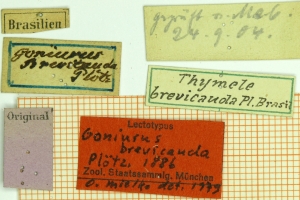 Brasilien
geprüft u. Mab.
24.9.04.
Goniurus
Brevicauda
Plötz
Thymele
brevicauda Pl. Brasil
Original
Lectotypus
Goniurus
brevicauda
Plötz, 1886
Zool. Staatssammlg. München
O. Mielke det. 1979